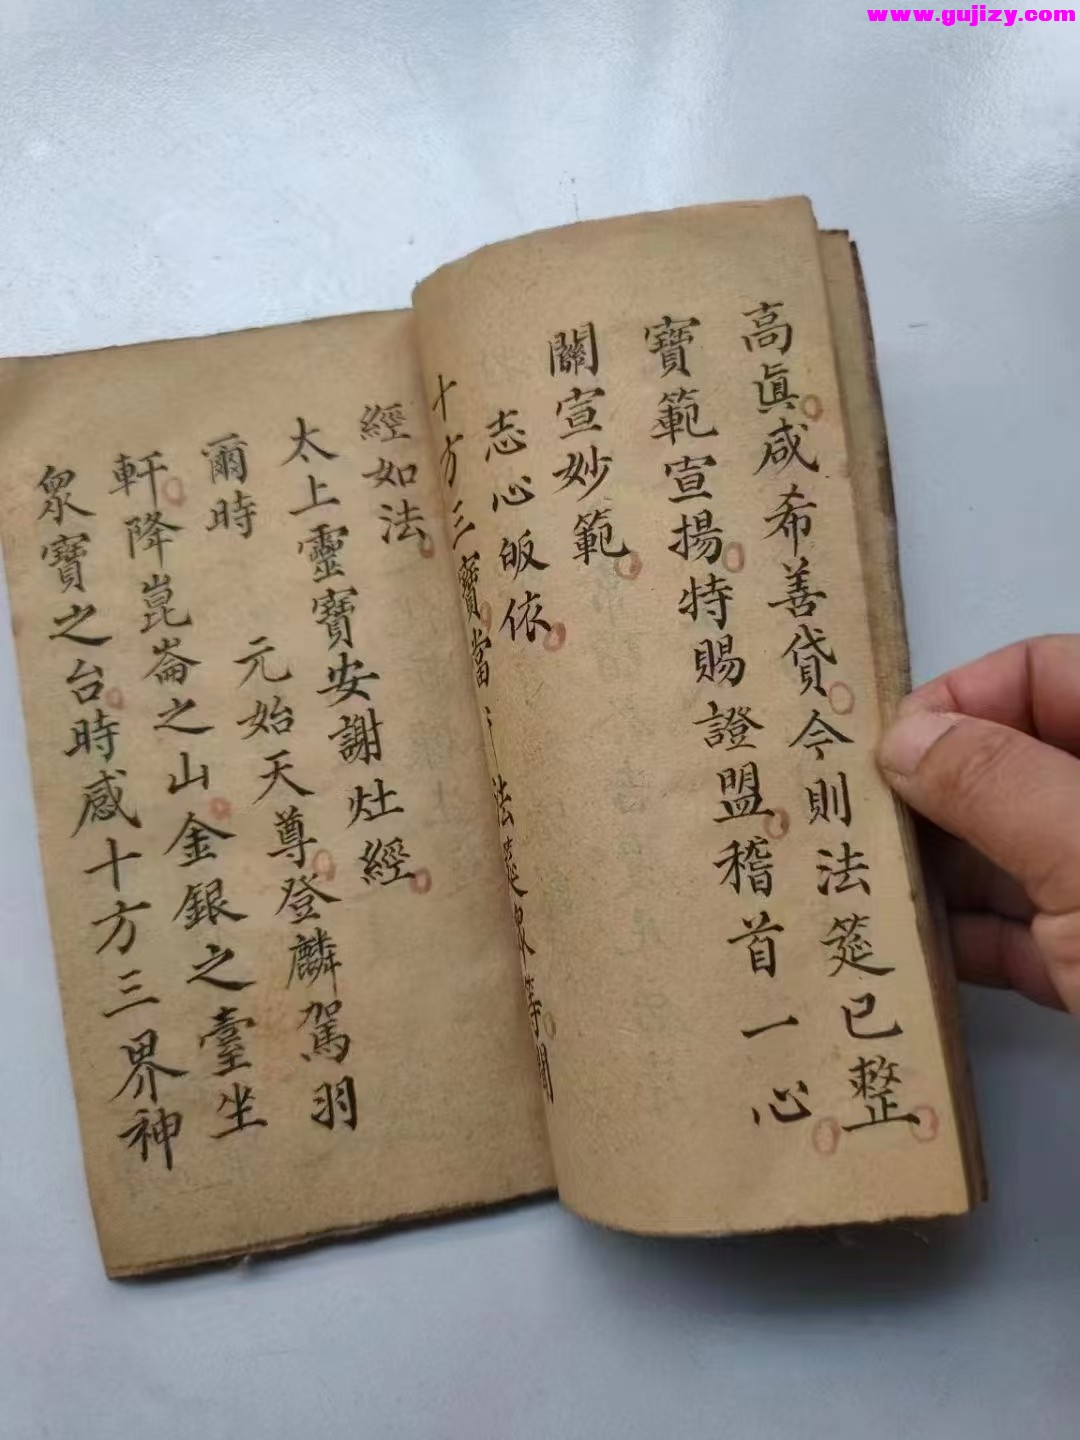 www.gujizy.com
高眞咸希善貸今則法筵已整
寶範宣揚特賜證盟稽首一心
關宣妙範
志心皈依
十方三寶當法筵眾等開
經如法
太上靈寶安謝灶經
爾時 元始天尊登麟駕羽
軒降崑崙之山金銀之臺坐
眾寶之台時感十方三界神